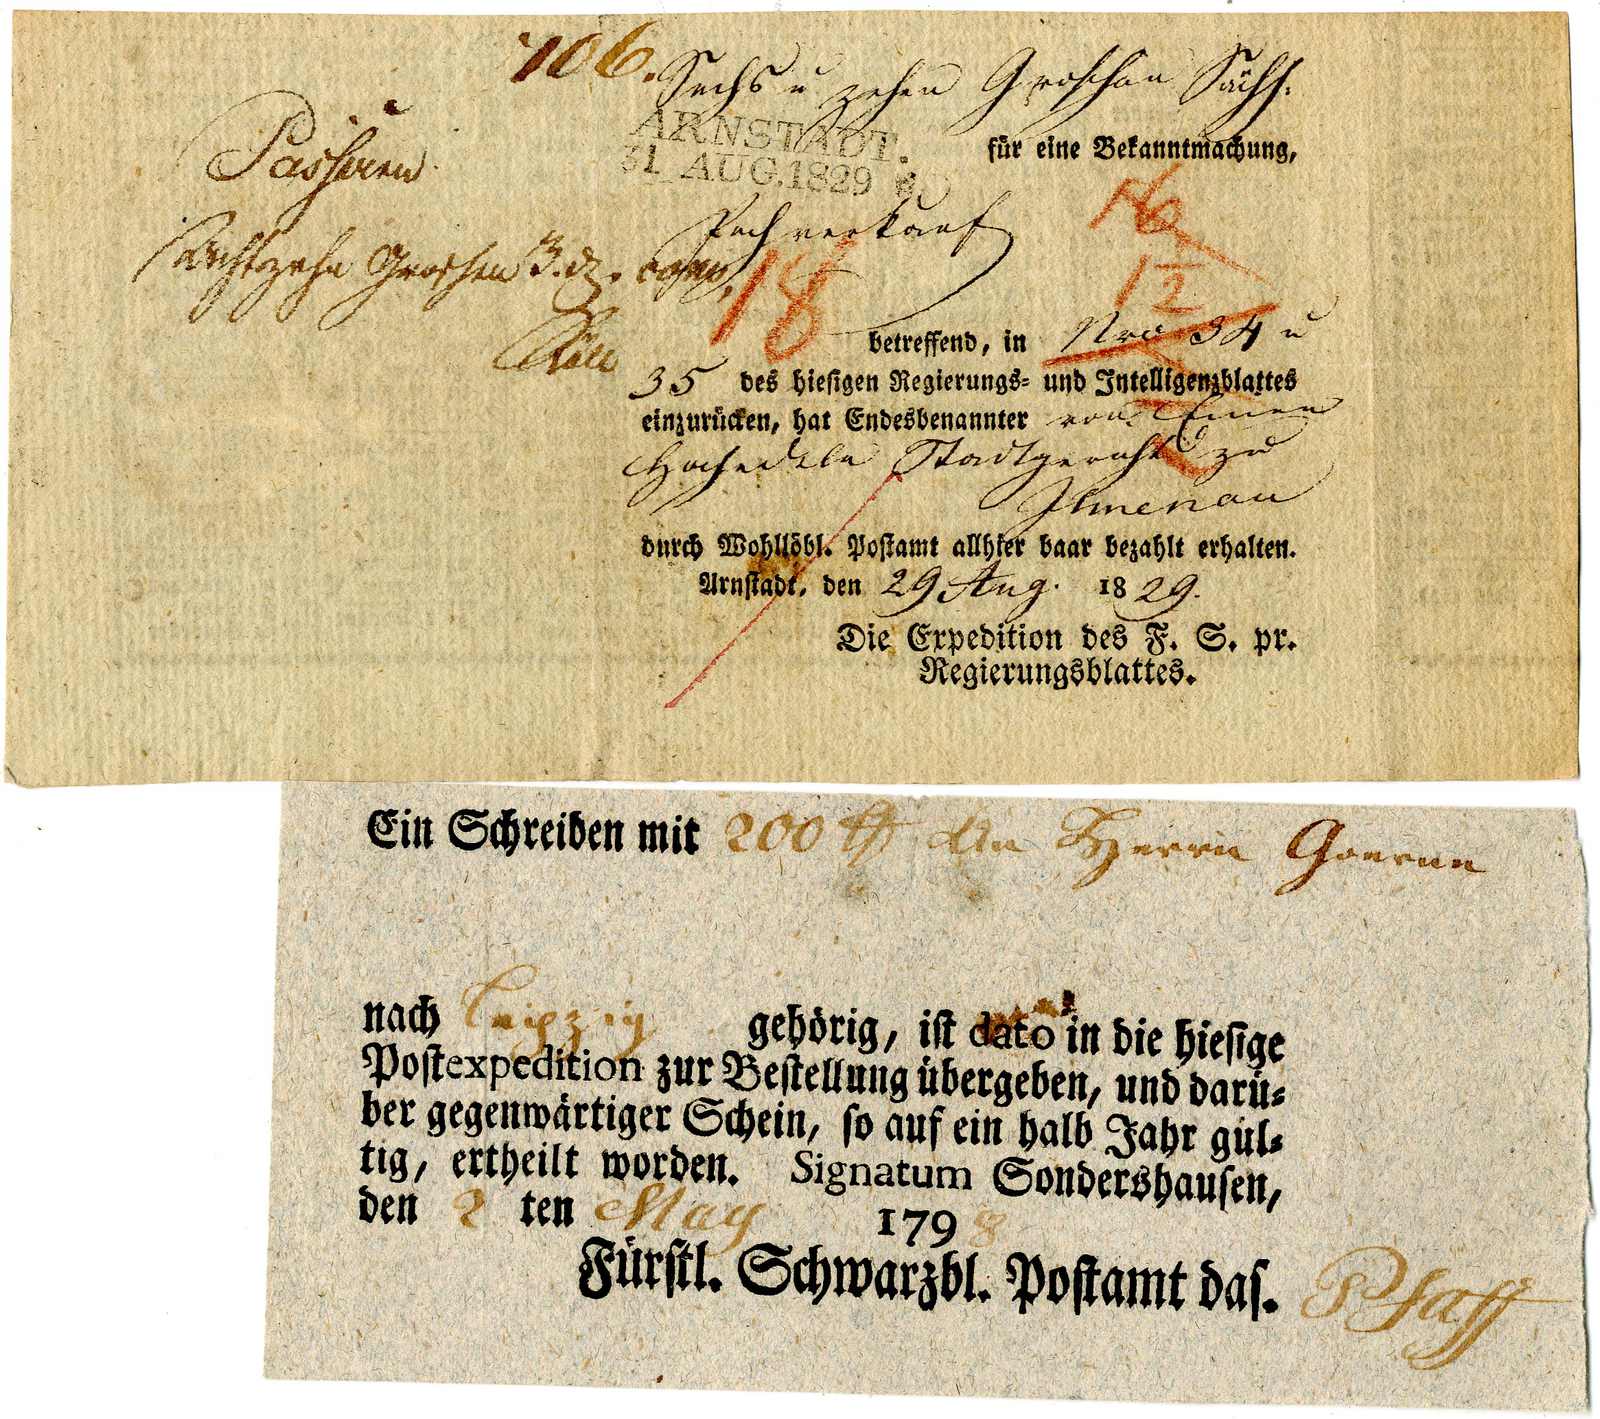 106.
Sechs u zehen Groschen Sächs.
ARNSTADT.
31 AUG.1829
für eine Bekanntmachung,
Passiren
Pachverkauf
16
Achtzehn Groschen 3. dz.
18
12
betreffend, in Nro 34 u
35 des hiesigen Regierungs= und Intelligenzblattes
einzurücken, hat Endesbenannter von Einem
Hochedeln Stadtgericht zu
Ilmenau
durch Wohllöbl. Postamt allhier baar bezahlt erhalten.
Arnstadt, den 29 Aug. 1829.
Die Expedition des F. S. pr.
Regierungsblattes.
Ein Schreiben mit 200 An Herrn
nach Leipzig gehörig, ist dato in die hiesige
Postexpedition zur Bestellung übergeben, und darü=
ber gegenwärtiger Schein, so auf ein halb Jahr gül=
tig, ertheilt worden. Signatum Sondershausen,
den 2 ten May 1798
Fürstl. Schwarzbl. Postamt das. Pfaff